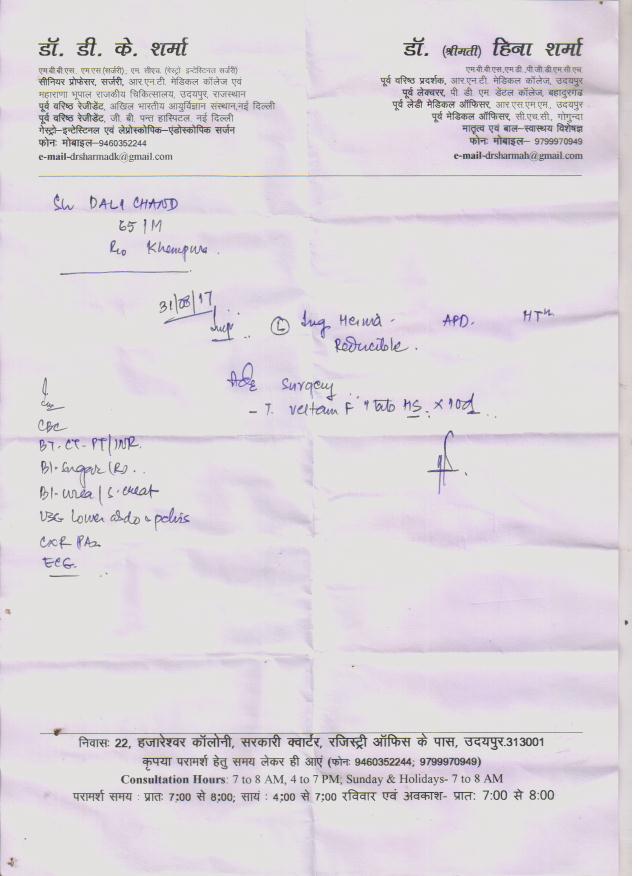 डॉ. डी. के. शर्मा
एम.बी.बी.एस. एम.एस.(सर्जरी), एम. सीएच. (गेस्ट्रो इन्टेस्टिनल सर्जरी)
सीनियर प्रोफेसर, सर्जरी, आर.एन.टी. मेडिकल कॉलेज एवं
महाराणा भूपाल राजकीय चिकित्सालय, उदयपुर, राजस्थान
पूर्व वरिष्ठ रेजीडेंट, अखिल भारतीय आयुर्विज्ञान संस्थान,नई दिल्ली
पूर्व वरिष्ठ रेजीडेंट, जी. बी. पन्त हास्पिटल. नई दिल्ली
गेस्ट्रो–इन्टेस्टिनल एवं लेप्रोस्कोपिक–एंडोस्कोपिक सर्जन
फोनः मोबाइल–9460352244
e-mail-drsharmadk@gmail.com
डॉ. (श्रीमती) हिना शर्मा
एम.बी.बी.एस.,एम.डी.,पी.जी.डी.एम.सी.एच.
पूर्व वरिष्ठ प्रदर्शक, आर.एन.टी. मेडिकल कॉलेज, उदयपुर
पूर्व लेक्चरर, पी. डी. एम. डेंटल कॉलेज, बहादुरगढ
पूर्व लेडी मेडिकल ऑफिसर, आर.एस.एम.एम., उदयपुर
पूर्व मेडिकल ऑफिसर, सी.एच.सी., गोगुन्दा
मातृत्व एवं बाल–स्वास्थ्य विशेषज्ञ
फोनः मोबाइल– 9799970949
e-mail-drsharmah@gmail.com
DALI CHAND
65 / M
R/o Khempura.
31/08/17
Imp (L) Ing Hernia. APD. HTN
Reducible.
Surgery
- T. HS. x 10d
CBC
BT. CT. PT/INR.
Bl. Sugar (R)..
Bl. urea / S. creat
USG Lower abdo & pelvis
CXR PA
ECG.
निवासः 22, हजारेश्वर कॉलोनी, सरकारी क्वार्टर, रजिस्ट्री ऑफिस के पास, उदयपुर.313001
कृपया परामर्श हेतु समय लेकर ही आएं (फोनः 9460352244; 9799970949)
Consultation Hours: 7 to 8 AM, 4 to 7 PM; Sunday & Holidays- 7 to 8 AM
परामर्श समय : प्रातः 7:00 से 8:00; सायं : 4:00 से 7:00 रविवार एवं अवकाश- प्रातः 7:00 से 8:00